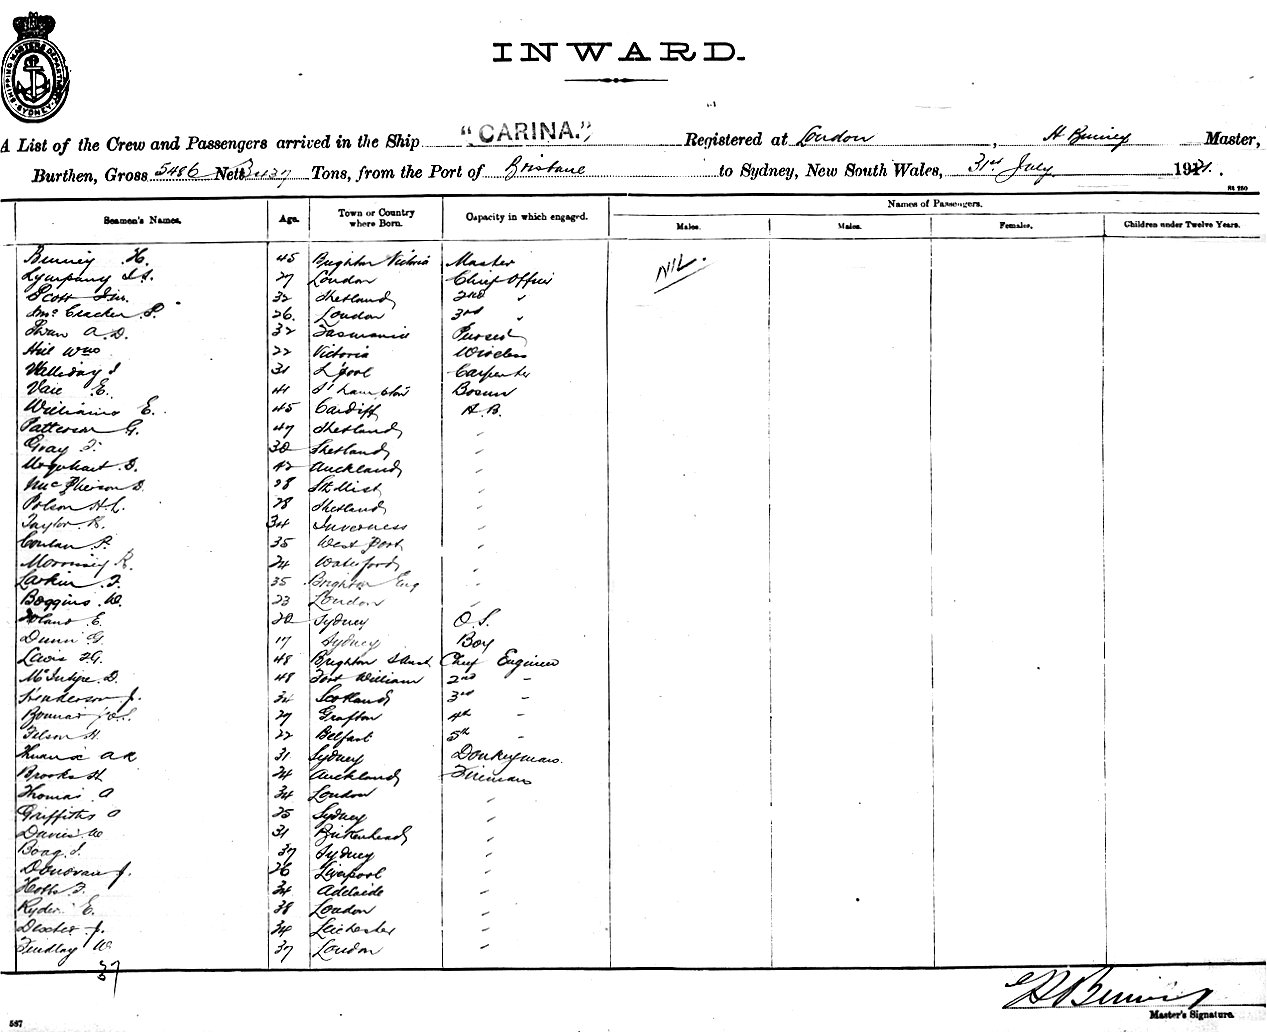 SHIPPING MASTERS DEPARTMENT SYDNEY
INWARD.
A List of the Crew and Passengers arrived in the Ship "CARINA." Registered at London, H Binney Master,
Burthen, Gross 5486 Nett Tons, from the Port of Brisbane to Sydney, New South Wales, 31st July 1921.
St 750
Seamen's Names. Age. Town or Country where Born. Capacity in which engaged. Names of Passengers.
Males. Males. Females. Children under Twelve Years.
Binney H. 45 Brighton Victoria Master NIL.
Lympany 27 London Chief Officer
Scott Jm. 32 Shetland 2nd "
McCracken P. 26. London 3rd "
Swan A.D. 32 Tasmania Purser
Hill Wm 22 Victoria Wireless
Halliday J 31 L'pool Carpenter
Vale E. 41 S'hampton Bosun
Williams E. 45 Cardiff A.B.
Patterson G. 47 Shetland "
Gray F. 30 Shetland "
Urquhart D. 42 Auckland "
McPherson D. 28 "
Polson H.L. 28 Shetland "
Taylor R. 34 Inverness "
Conlan P. 35 West Port "
Morrissy R. 24 Waterford "
Larkin F. 35 Brighton Eng "
Boggins W. 23 London "
E. 20 Sydney O.S.
Dunn G. 17 Sydney Boy
Lewis 48 Brighton Chief Engineer
McIntyre D. 48 Fort William 2nd "
Henderson J. 34 Scotland 3rd "
27 Grafton 4th "
H. 22 Belfast 5th "
A R 31 Sydney Donkeyman.
Brooks H 24 Auckland Fireman
Thomas A 34 London "
Griffiths O 25 Sydney "
Davies W 31 Birkenhead "
Boag J. 37 Sydney "
Donovan J. 26 Liverpool "
F. 34 Adelaide "
Ryder E. 38 London "
Dexter J. 34 Leichester "
Findlay W 37 London "
37
H Binney
Master's Signature.
587